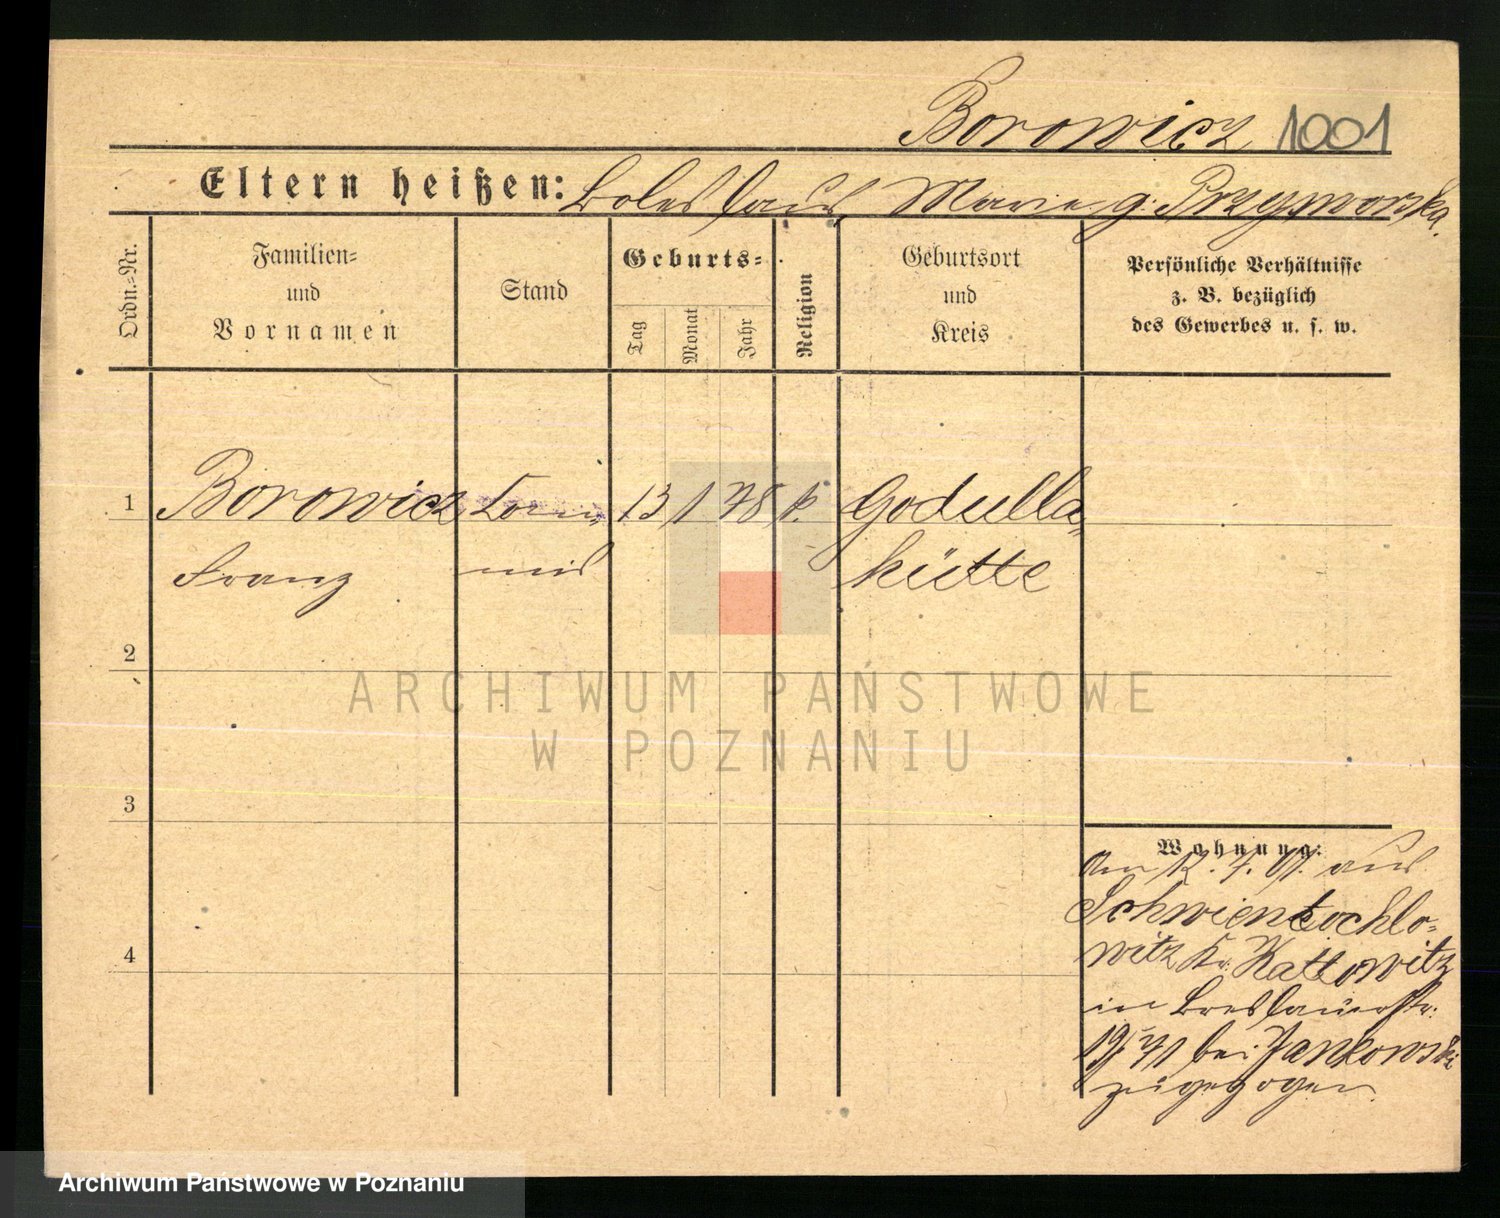 Borowicz 1001
Eltern heißen: Boleslaus, Marie g. Przyworska.
Ordn.-Nr.
Familien-
und
Vornamen
Stand
Geburts-
Tag
Monat
Jahr
Religion
Geburtsort
und
Kreis
Persönliche Verhältnisse
z. B. bezüglich
des Gewerbes u. s. w.
1 Borowicz 13 1 78 k. Godulla-
Franz hütte
2
ARCHIWUM PAŃSTWOWE
W POZNANIU
3
4
Wohnung:
Am 12. 7. 01. aus
Schwientochlo-
witz Kr. Kattowitz
in Breslauerstr.
bei Jankowski
zugezogen.
Archiwum Państwowe w Poznaniu